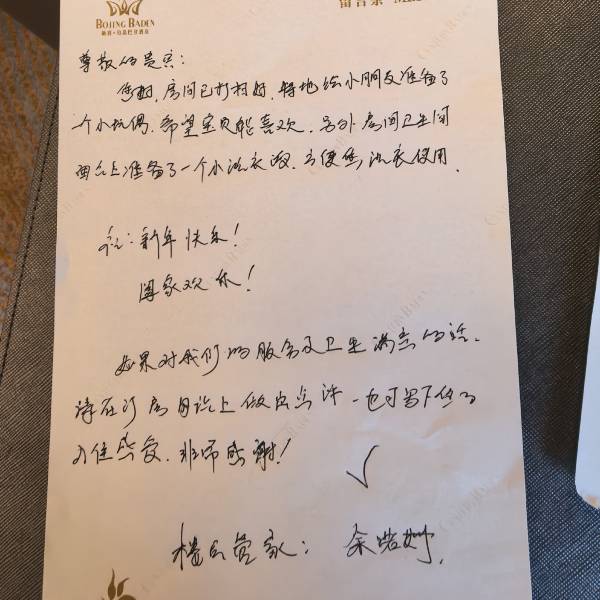 BOJING BADEN
留言条
尊敬的贵宾:
您好,房间已打扫好,特地给小朋友准备了
一个小玩偶,希望宝贝能喜欢,另外房间卫生间
面台上准备了一个小洗衣液,方便您洗衣使用.
祝:新年快乐!
阖家欢乐!
如果对我们的服务及卫生满意的话,
请在订房网站上做出点评,也可留下您的
入住感受,非常感谢!
楼层管家: